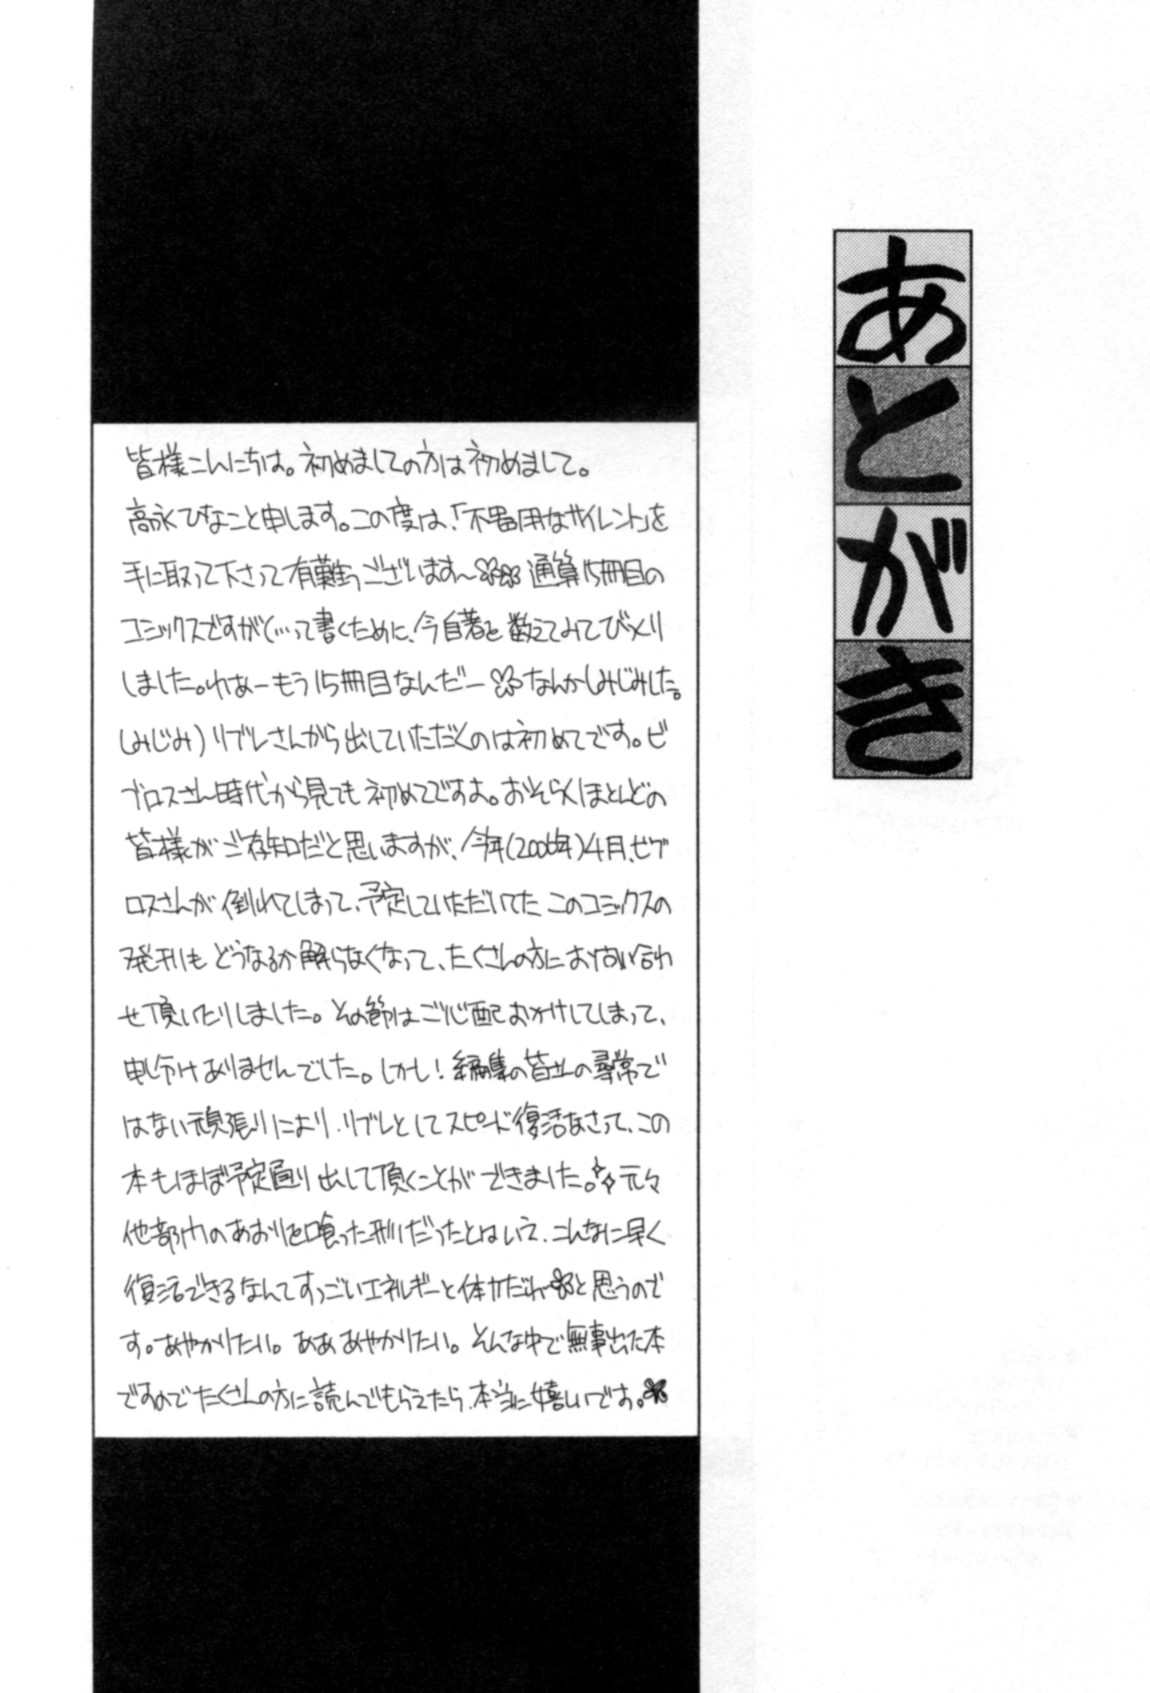 あとがき
皆様こんにちは。初めましての方は初めまして。
高永ひなこと申します。この度は、「不器用なサイレント」を
手に取って下さって有難うございます〜 通算15冊目の
コミックスですが(…って書くために、今自著を数えてみてびっくり
しました。わあーもう15冊目なんだー なんかしみじみした。
しみじみ)リブレさんから出していただくのは初めてです。ビ
ブロスさん時代から見ても初めてですよ。おそらくほとんどの
皆様がご存知だと思いますが、今年(2006年)4月、ビブ
ロスさんが倒れてしまって、予定していただいてたこのコミックスの
発刊もどうなるか解らなくなって、たくさんの方にお問い合わ
せ頂いたりしました。その節はご心配おかけしてしまって、
申し分けありませんでした。しかし!編集の皆サマの尋常で
はない頑張りにより、リブレとしてスピード復活なさって、この
本もほぼ予定通り出して頂くことができました。元々
他部門のあおりを喰った形だったとはいえ、こんなに早く
復活できるなんてすっごいエネルギーと体力だわ と思うので
す。あやかりたい。ああ あやかりたい。そんな中で無事出た本
ですのでたくさんの方に読んでもらえたら、本当に嬉しいです。